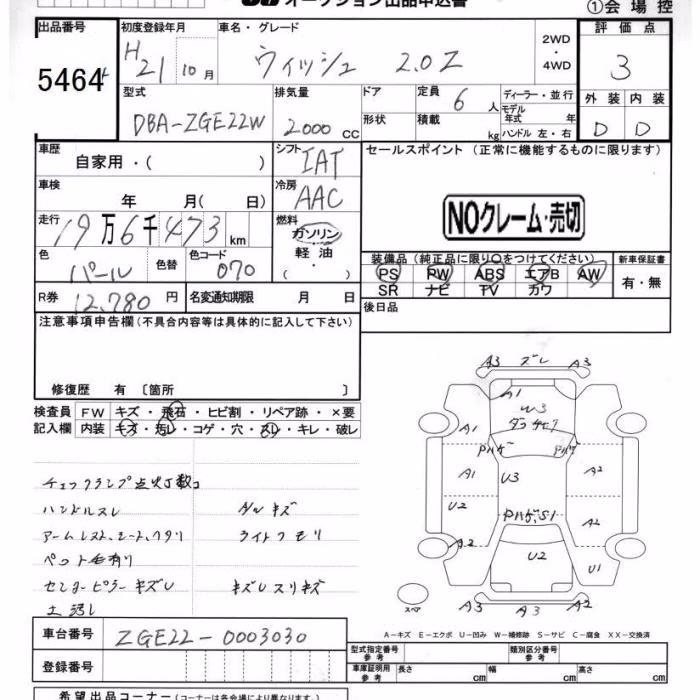 オークション出品申込書
①会場控
出品番号
5464
初度登録年月
H21 10月
車名・グレード
ウィッシュ 2.0Z
2WD・4WD
評価点
3
型式
DBA-ZGE22W
排気量
2000 CC
ドア
形状
定員 6 人
積載 kg
ディーラー・並行
モデル年式 年
ハンドル 左・右
外装 内装
D D
車歴
自家用・( )
シフト
IAT
セールスポイント (正常に機能するものに限ります)
車検
年 月( 日)
冷房
AAC
NOクレーム・売切
走行
19万6千473 km
燃料
ガソリン
軽油
( ・ )
色
パール
色替
色コード
070
装備品(純正品に限り○をつけてください)
PS PW ABS エアB AW
SR ナビ TV カワ
新車保証書
有・無
R券
12,780 円
名変通知期限 月 日
後日品
注意事項申告欄(不具合内容等は具体的に記入して下さい)
修復歴 有 〔箇所 〕
検査員 FW キズ・飛石・ヒビ割・リペア跡・×要
記入欄 内装 キズ・汚レ・コゲ・穴・スレ・キレ・破レ
チェックランプ点灯数コ
ハンドルスレ
アームレスト、シート、ウタリ
ペット毛有り
センターピラーキズレ
ダルキズ
ライトクモリ
キズレスリキズ
A3 ズレ A3
A1
W3
A1
パハゲ パハゲ
A1 U3 A2
U2
Pハゲ、S1
A2
A2 U2 U1
A3 A3 A2
スペア
A-キズ E-エクボ U-凹み W-補修跡 S-サビ C-腐食 XX-交換済
車台番号
ZGE22-0003030
登録番号
型式指定番号 参考
類別区分番号 参考
車庫証明用 参考 長さ cm 幅 cm 高さ cm
希望出品コーナー(コーナーは各会場により異なります。)